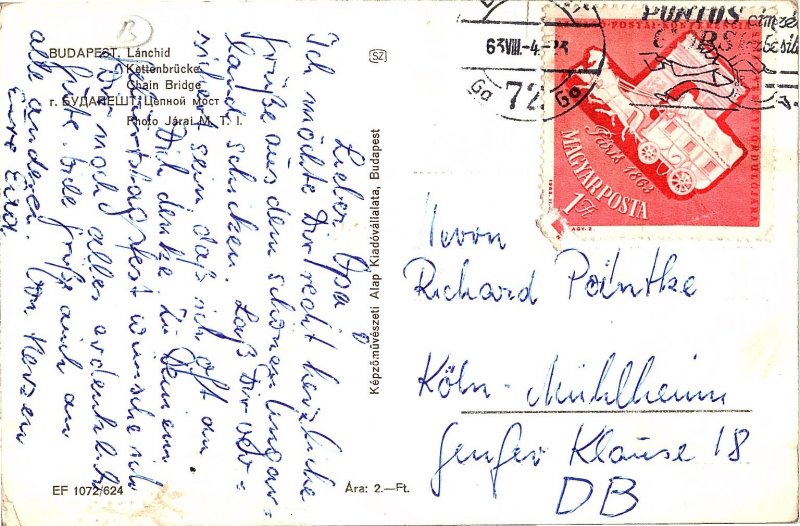 BUDAPEST, Lánchid
Kettenbrücke
Chain Bridge
г. БУДАПЕШТ, Цепной мост
Photo Járai M. T. I.
SZ
B
Lieber Opa!
Ich möchte Dir recht herzliche
Grüße aus dem schönen Ungar-
land schicken. Laß Dir ver-
sichert sein, daß ich oft an
Dich denke. Zu Deinem
Geburtstagsfest wünsche ich
Dir noch alles erdenklich
Gute. Bitte Grüße auch an
alle anderen. Von Herzen
Eure Erika
EF 1072/624
Ára: 2.–Ft.
Képzőművészeti Alap Kiadóvállalata, Budapest
63 VIII.-4.-23
72
PONTOS
címzés
Páris 1863
MAGYAR POSTA
1 Ft
Herrn
Richard Pointke
Köln-Mühlheim
Genfer Klause 18
DB